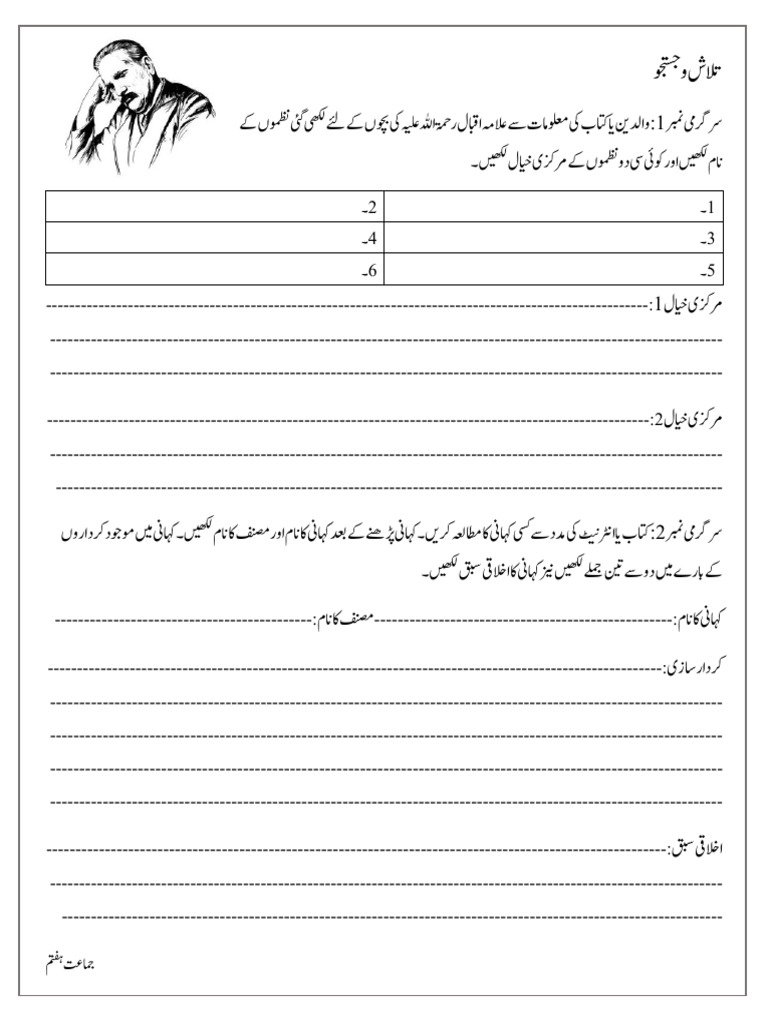 تلاش و جستجو
سرگرمی نمبر 1: والدین یا کتاب کی معلومات سے علامہ اقبال رحمۃ اللہ علیہ کی بچوں کے لئے لکھی گئی نظموں کے
نام لکھیں اور کوئی سی دو نظموں کے مرکزی خیال لکھیں۔
1۔ 2۔
3۔ 4۔
5۔ 6۔
مرکزی خیال 1:---------------------------------------------
---------------------------------------------
---------------------------------------------
مرکزی خیال 2:---------------------------------------------
---------------------------------------------
---------------------------------------------
سرگرمی نمبر 2: کتاب یا انٹرنیٹ کی مدد سے کسی کہانی کا مطالعہ کریں۔ کہانی پڑھنے کے بعد کہانی کا نام اور مصنف کا نام لکھیں۔ کہانی میں موجود کرداروں
کے بارے میں دو سے تین جملے لکھیں نیز کہانی کا اخلاقی سبق لکھیں۔
کہانی کا نام:-----------------------مصنف کا نام:-----------------------
کردار سازی:---------------------------------------------
---------------------------------------------
---------------------------------------------
---------------------------------------------
---------------------------------------------
اخلاقی سبق:---------------------------------------------
---------------------------------------------
---------------------------------------------
جماعت ہفتم